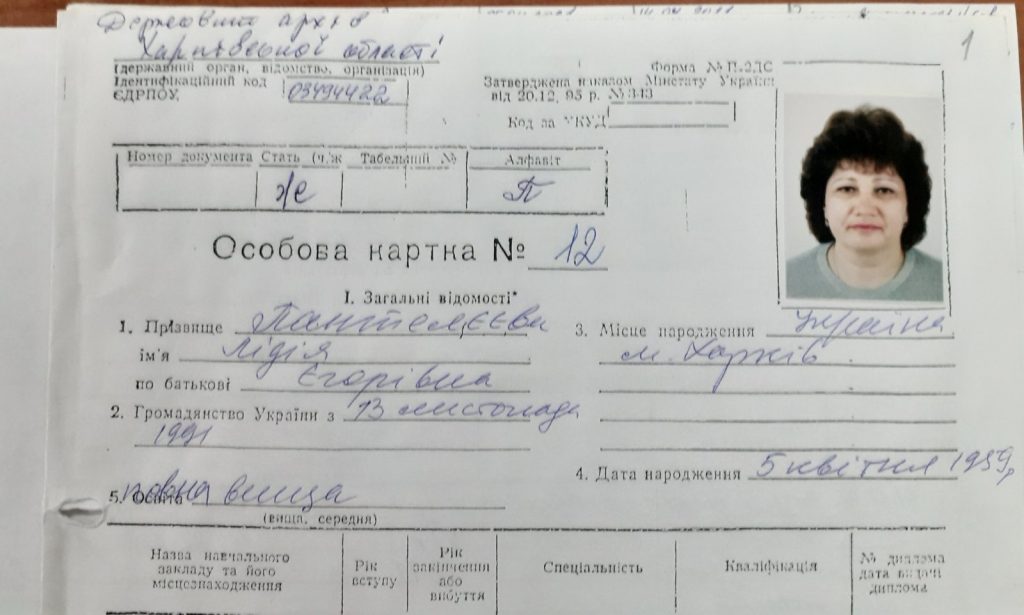 Державний архів
Харківської області
(державний орган, відомство, організація)
Ідентифікаційний код
ЄДРПОУ 03494422
Форма № П-2ДС
Затверджена наказом Мінстату України
від 20.12. 95 р. № 343
Код за УКУД
1
Номер документа Стать (ч/ж Табельний № Алфавіт
Ж П
Особова картка № 12
I. Загальні відомості*
1. Прізвище Пантелєєва
ім'я Лідія
по батькові Єгорівна
2. Громадянство України з 13 листопада
1991
3. Місце народження Україна
м. Харків
4. Дата народження 5 квітня 1959р
5. Освіта повна вища
(вища, середня)
Назва навчального закладу та його місцезнаходження
Рік вступу
Рік закінчення або вибуття
Спеціальність
Кваліфікація
№ диплома дата видачі диплома